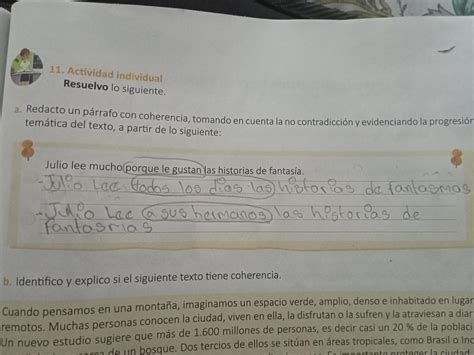 11. Actividad individual
Resuelvo lo siguiente.
a. Redacto un párrafo con coherencia, tomando en cuenta la no contradicción y evidenciando la progresión
temática del texto, a partir de lo siguiente:
Julio lee mucho porque le gustan las historias de fantasía.
-Julio Lee todos los días las historias de fantasmas
-Julio Lee a sus hermanos las historias de
fantasmas
b. Identifico y explico si el siguiente texto tiene coherencia.
Cuando pensamos en una montaña, imaginamos un espacio verde, amplio, denso e inhabitado en lugar
remotos. Muchas personas conocen la ciudad, viven en ella, la disfrutan o la sufren y la atraviesan a diar
Un nuevo estudio sugiere que más de 1.600 millones de personas, es decir casi un 20 % de la poblaci
de un bosque. Dos tercios de ellos se sitúan en áreas tropicales, como Brasil o In
proteger la ciudad